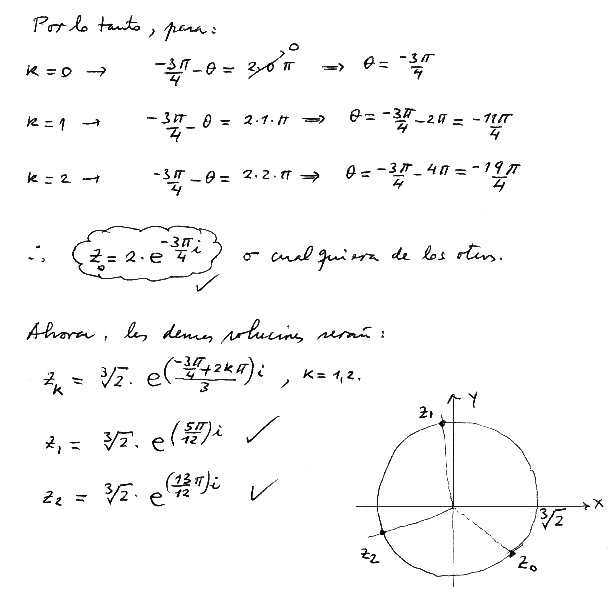 Por lo tanto, para:
K = 0 → -3π/4 - θ = 2·0·π 0 ⇒ θ = -3π/4
K = 1 → -3π/4 - θ = 2·1·π ⇒ θ = -3π/4 - 2π = -11π/4
K = 2 → -3π/4 - θ = 2·2·π ⇒ θ = -3π/4 - 4π = -19π/4
∴ z₀ = 2·e^(-3π/4 i) o cualquiera de los otros. ✓
Ahora, las demas soluciones serán:
z_k = ∛2 · e^((-3π/4 + 2kπ)/3)i , K = 1, 2.
z₁ = ∛2 · e^(5π/12)i ✓
z₂ = ∛2 · e^(13π/12)i ✓
Y
z₁
X
∛2
z₂
z₀